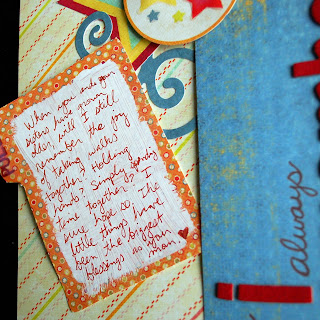 When you and your
sisters have grown
older, will I still
remember the joy
of taking walks
together? Holding
hands? Simply spending
time together? I
sure hope so. The
little things have
been the biggest
blessings as your
mom.
always